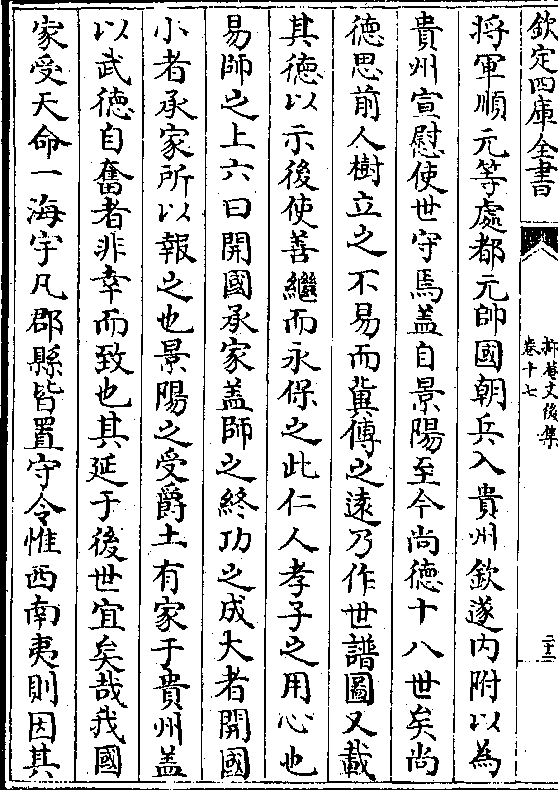 欽定四庫全書
卷十七
將軍順元等處都元帥國朝兵入貴州欽遂内附以為
貴州宣慰使世守焉蓋自景陽至今尚德十八世矣尚
德思前人樹立之不易而冀傳之遠乃作世譜圖又載
其德以示後使善繼而永保之此仁人孝子之用心也
易師之上六曰開國承家蓋師之終功之成大者開國
小者承家所以報之也景陽之受爵土有家于貴州盖
以武德自奮者非幸而致也其延于後世宜矣哉我國
家受天命一海宇凡郡縣皆置守令惟西南夷則因其